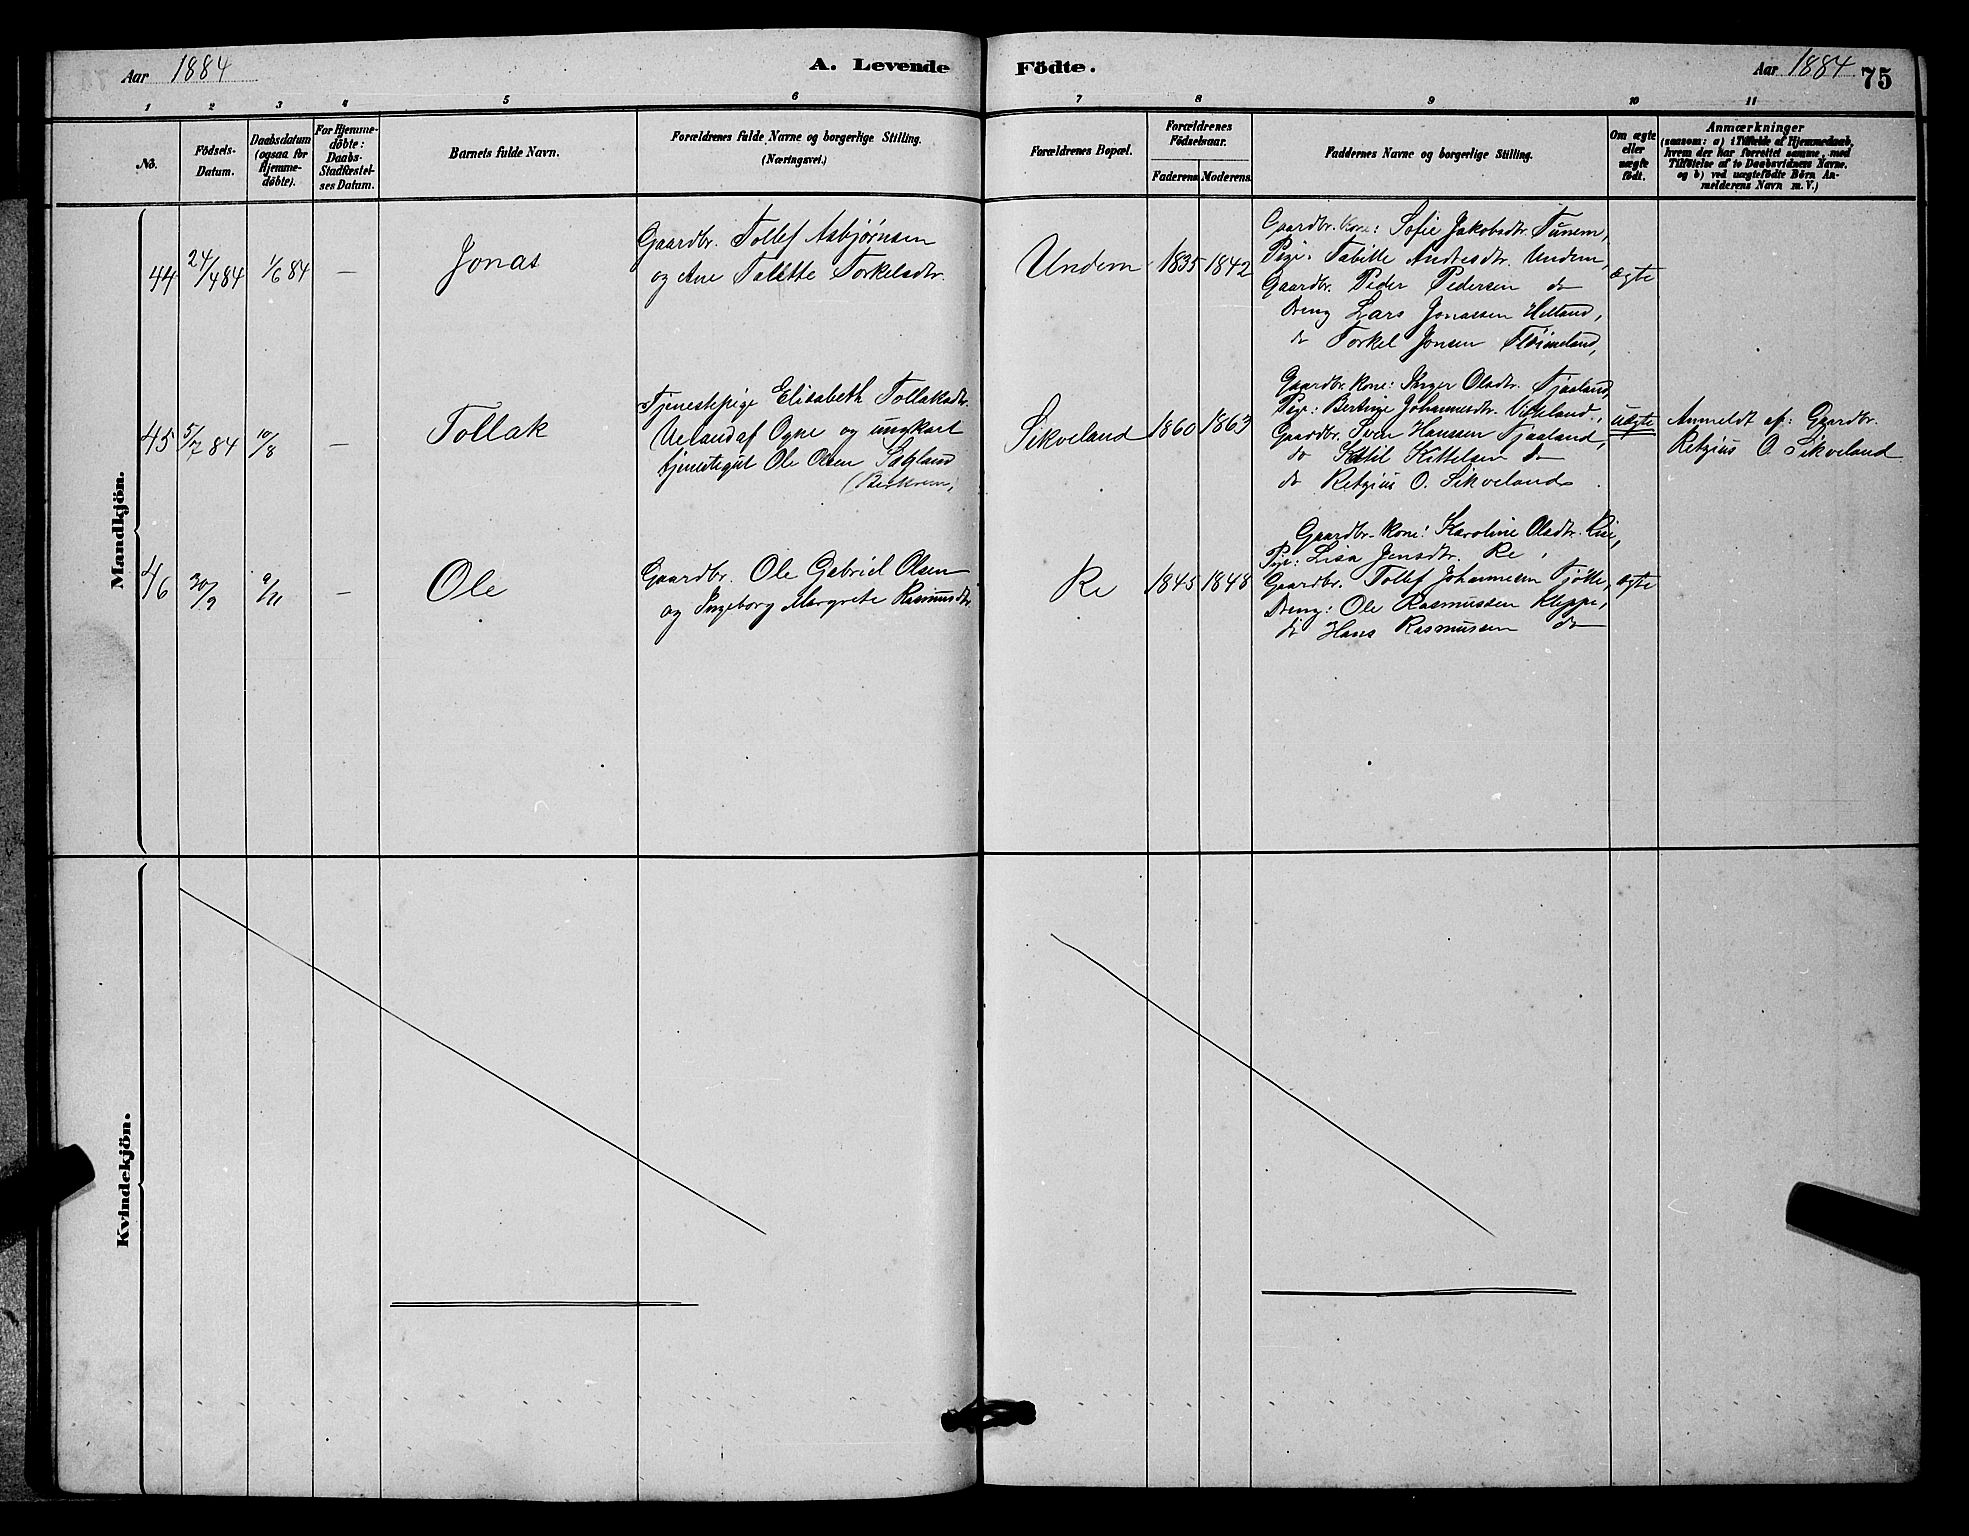 Aar 1884
A. Levende Födte.
Aar 1884
75
1 2 3 4 5 6 7 8 9 10 11
No.
Födsels-
Datum.
Daabsdatum
(ogsaa for
Hjemme-
döbte).
For Hjemme-
döbte:
Daabs-
Stadfæstel-
ses Datum.
Barnets fulde Navn.
Forældrenes fulde Navne og borgerlige Stilling.
(Næringsvei.)
Forældrenes Bopæl.
Forældrenes
Födselsaar.
Faderens. Moderens.
Faddernes Navne og borgerlige Stilling.
Om ægte
eller
uægte
födt.
Anmærkninger
(saasom: a) i Tilfælde af Hjemmedaab,
hvem der har forrettet samme, med
Tilföielse af to Daabsvidners Navne.
og b) ved uægtefödte Börn An-
melderens Navn m. V.)
Mandkjön.
44
24/4 84
1/6 84
—
Jonas
Gaardbr. Tollef Asbjørnsen
og Ane Talette Torkelsdtr.
Undem
1835
1842
Gaardbr. kone: Sofie Jakobsdtr. Tunem,
Pige: Tabitte Andresdtr. Undem,
Gaardbr. Peder Pedersen do
Dreng Lars Jonassen Helland,
do Torkel Jonsen
ægte
45
5/7 84
10/8
—
Tollak
Tjenestepige Elisabeth Tollaksdtr.
Ueland af Ogne og ungkarl
tjenestegut Ole Olsen
Sikveland
1860
1863
Gaardbr. kone: Inger Olsdtr. Tjaaland,
Pige: Bertine Johannesdtr.
Gaardbr. Sven Hanssen Tjaaland,
do Kittil Kittelsen do
do Retzius O. Sikveland
uægte
Anmeldt af: Gaardbr.
Retzius O. Sikveland
46
30/9
9/11
—
Ole
Gaardbr. Ole Gabriel Olsen
og Ingeborg Margrete Rasmusdtr.
Re
1845
1848
Gaardbr. kone: Karoline Olsdtr.
Pige: Lisa Jensdtr. Re,
Gaardbr. Tollef Johannesen Tjøtte,
Dreng: Ole Rasmussen Kleppe,
do Hans Rasmussen do
ægte
Kvindekjön.